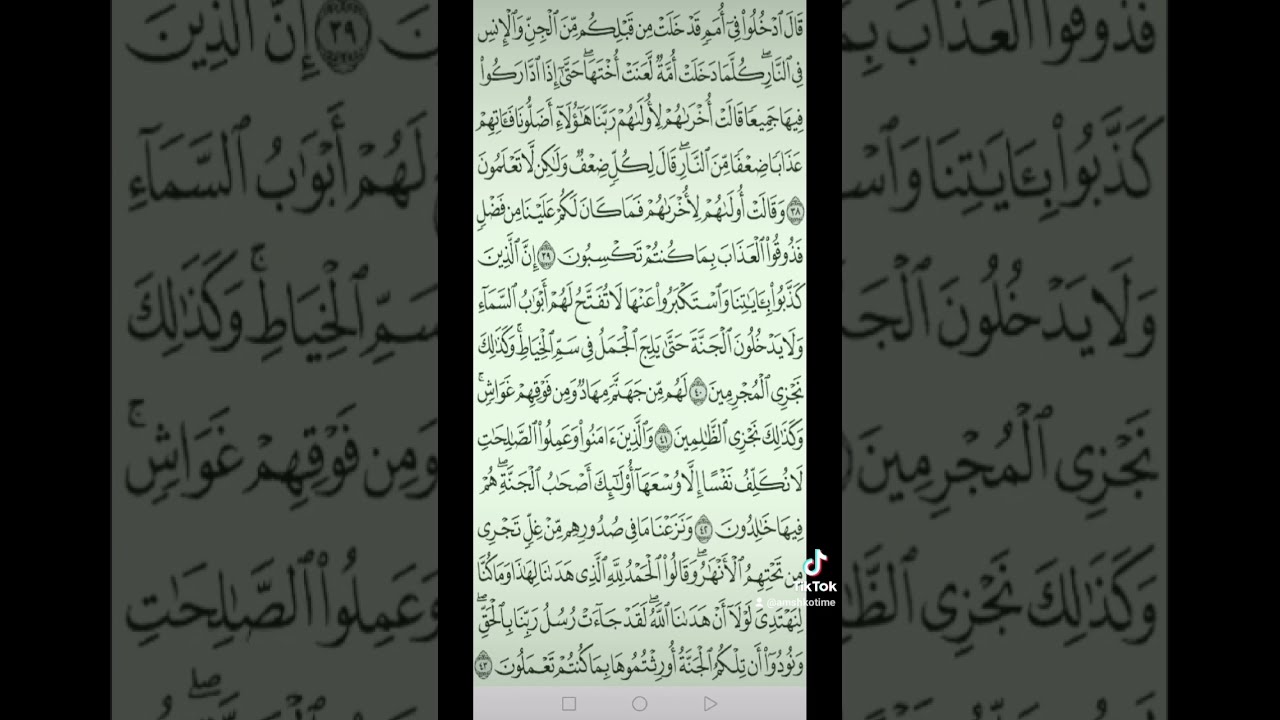 قَالَ ٱدْخُلُوا۟ فِىٓ أُمَمٍ قَدْ خَلَتْ مِن قَبْلِكُم مِّنَ ٱلْجِنِّ وَٱلْإِنسِ
فِى ٱلنَّارِ ۖ كُلَّمَا دَخَلَتْ أُمَّةٌ لَّعَنَتْ أُخْتَهَا ۖ حَتَّىٰٓ إِذَا ٱدَّارَكُوا۟
فِيهَا جَمِيعًا قَالَتْ أُخْرَىٰهُمْ لِأُولَىٰهُمْ رَبَّنَا هَٰٓؤُلَآءِ أَضَلُّونَا فَـَٔاتِهِمْ
عَذَابًا ضِعْفًا مِّنَ ٱلنَّارِ ۖ قَالَ لِكُلٍّ ضِعْفٌ وَلَٰكِن لَّا تَعْلَمُونَ
٣٨ وَقَالَتْ أُولَىٰهُمْ لِأُخْرَىٰهُمْ فَمَا كَانَ لَكُمْ عَلَيْنَا مِن فَضْلٍ
فَذُوقُوا۟ ٱلْعَذَابَ بِمَا كُنتُمْ تَكْسِبُونَ ٣٩ إِنَّ ٱلَّذِينَ
كَذَّبُوا۟ بِـَٔايَٰتِنَا وَٱسْتَكْبَرُوا۟ عَنْهَا لَا تُفَتَّحُ لَهُمْ أَبْوَٰبُ ٱلسَّمَآءِ
وَلَا يَدْخُلُونَ ٱلْجَنَّةَ حَتَّىٰ يَلِجَ ٱلْجَمَلُ فِى سَمِّ ٱلْخِيَاطِ ۚ وَكَذَٰلِكَ
نَجْزِى ٱلْمُجْرِمِينَ ٤٠ لَهُم مِّن جَهَنَّمَ مِهَادٌ وَمِن فَوْقِهِمْ غَوَاشٍ ۚ
وَكَذَٰلِكَ نَجْزِى ٱلظَّٰلِمِينَ ٤١ وَٱلَّذِينَ ءَامَنُوا۟ وَعَمِلُوا۟ ٱلصَّٰلِحَٰتِ
لَا نُكَلِّفُ نَفْسًا إِلَّا وُسْعَهَآ أُو۟لَٰٓئِكَ أَصْحَٰبُ ٱلْجَنَّةِ ۖ هُمْ
فِيهَا خَٰلِدُونَ ٤٢ وَنَزَعْنَا مَا فِى صُدُورِهِم مِّنْ غِلٍّ تَجْرِى
مِن تَحْتِهِمُ ٱلْأَنْهَٰرُ ۖ وَقَالُوا۟ ٱلْحَمْدُ لِلَّهِ ٱلَّذِى هَدَىٰنَا لِهَٰذَا وَمَا كُنَّا
لِنَهْتَدِىَ لَوْلَآ أَنْ هَدَىٰنَا ٱللَّهُ ۖ لَقَدْ جَآءَتْ رُسُلُ رَبِّنَا بِٱلْحَقِّ ۖ
وَنُودُوٓا۟ أَن تِلْكُمُ ٱلْجَنَّةُ أُورِثْتُمُوهَا بِمَا كُنتُمْ تَعْمَلُونَ ٤٣
TikTok
@amshkotime